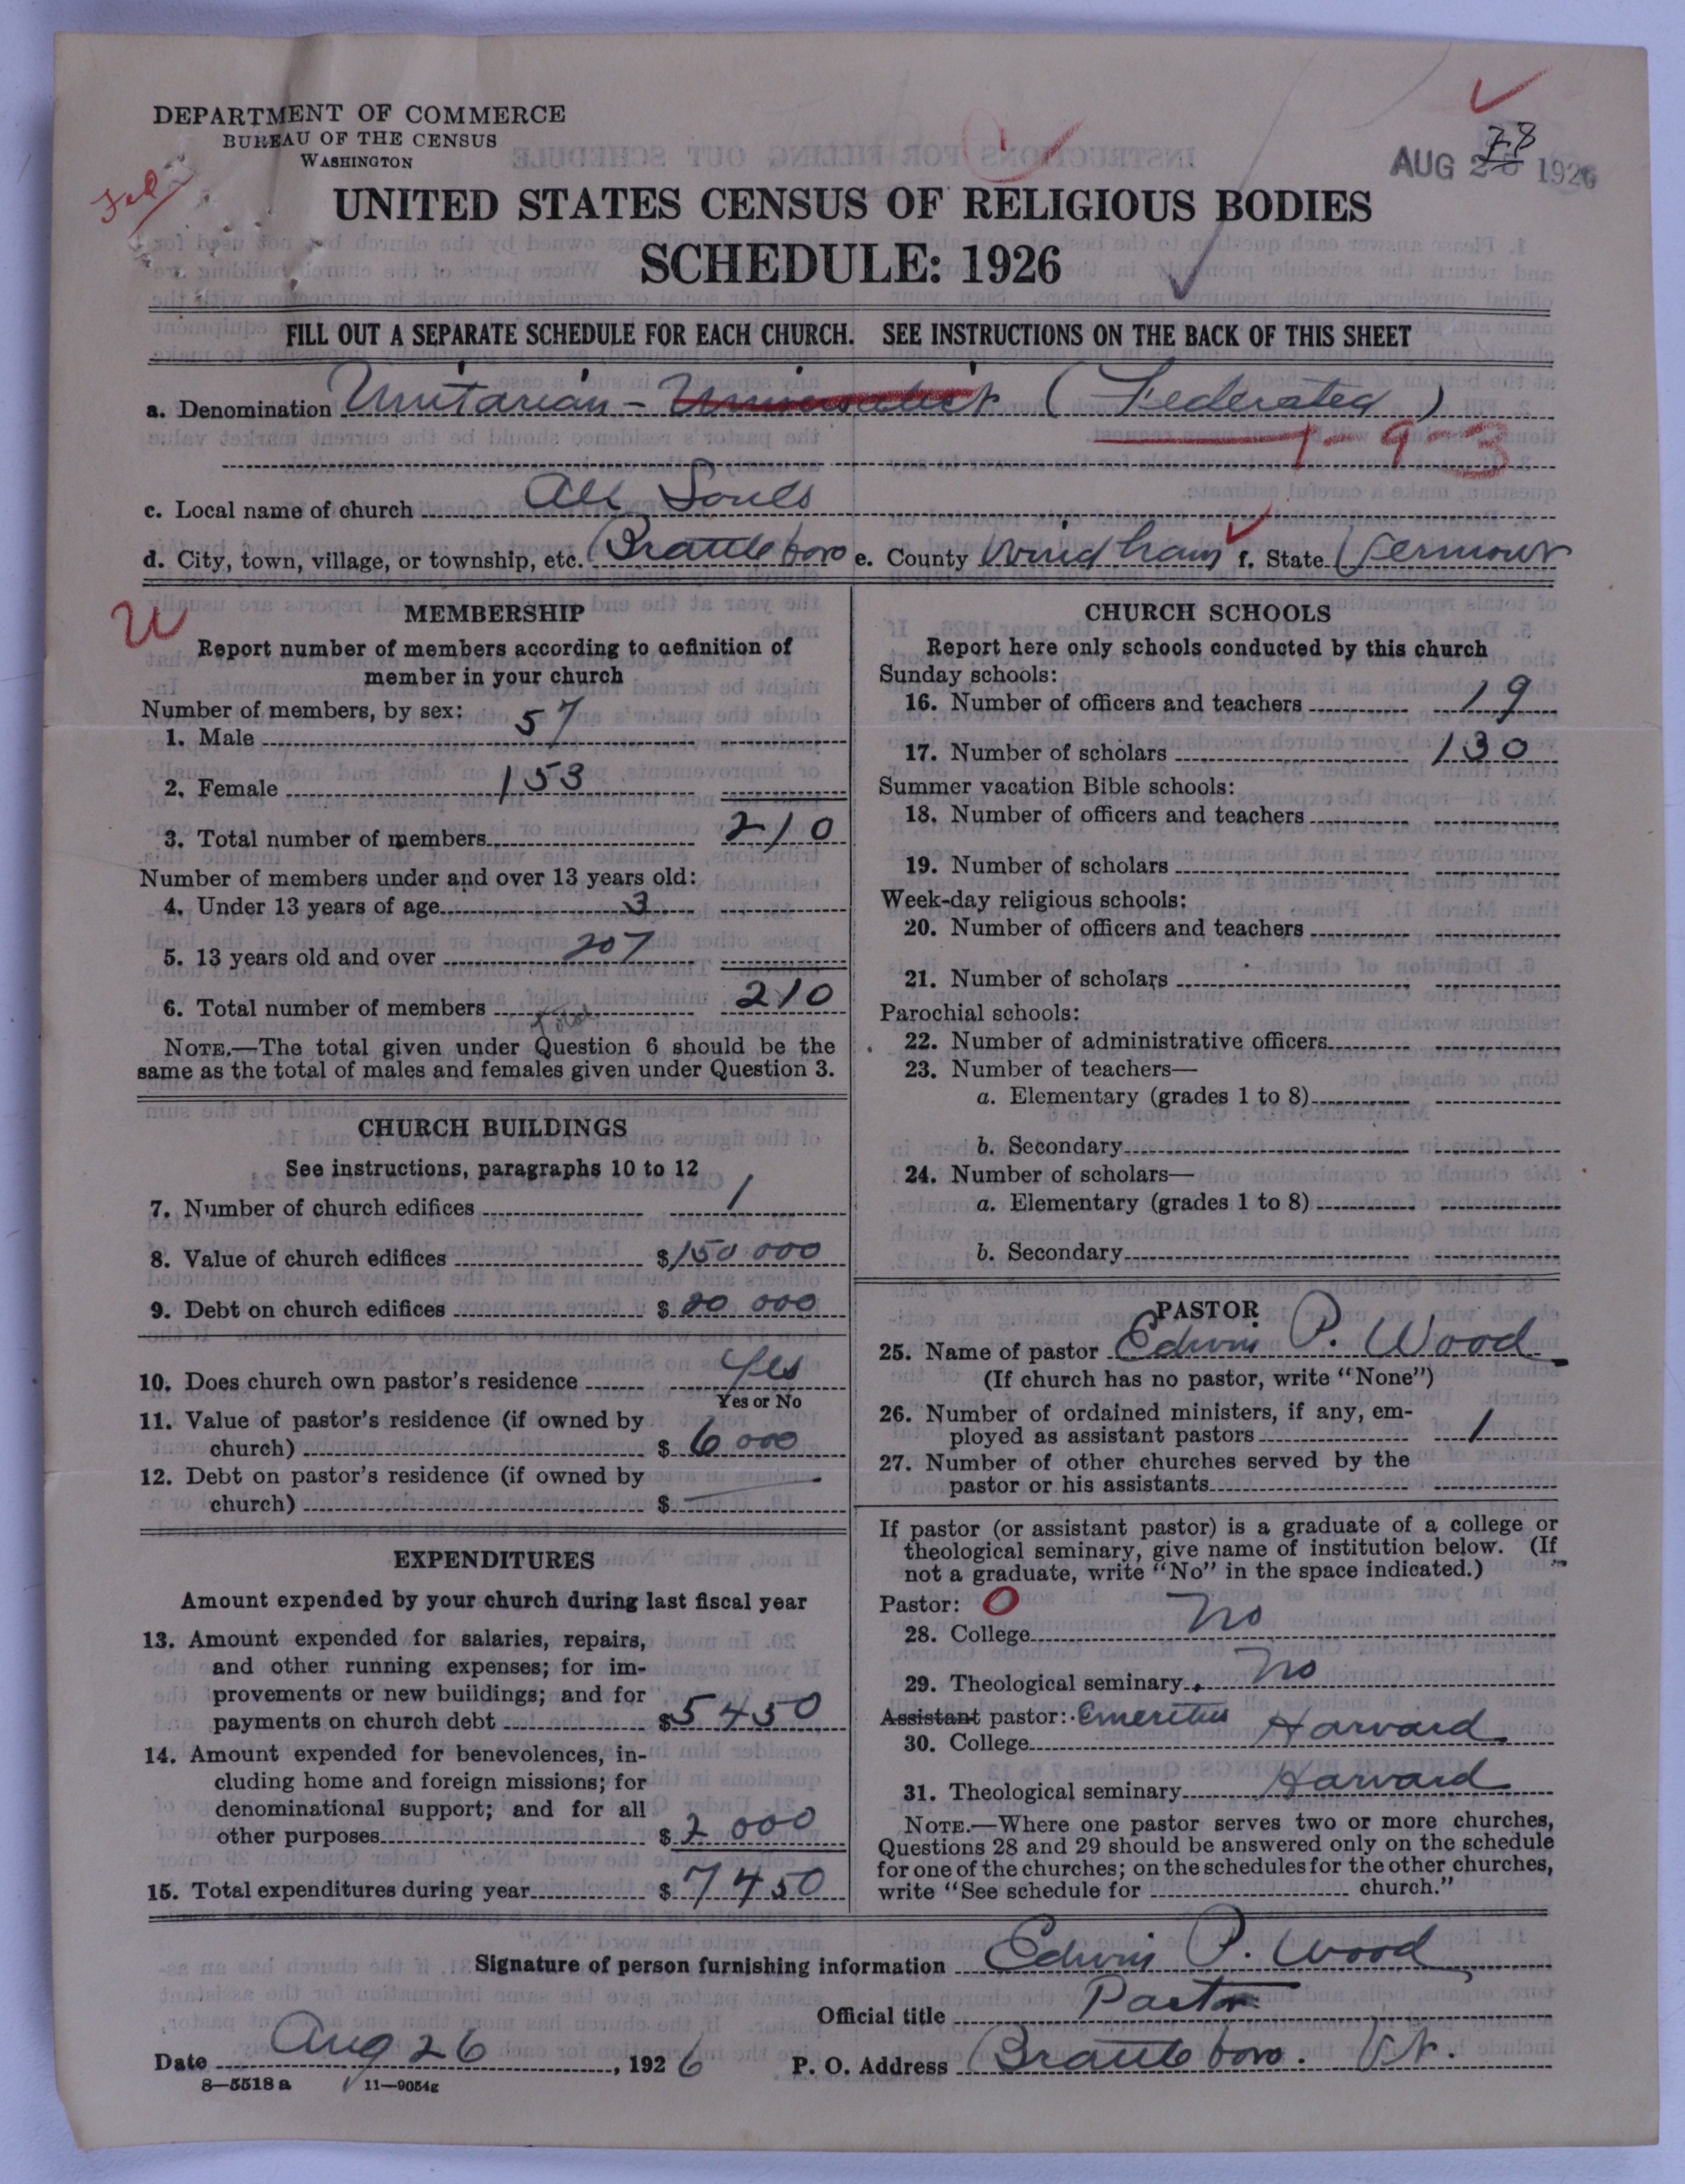 DEPARTMENT OF COMMERCE
BUREAU OF THE CENSUS
WASHINGTON
AUG 28 1926
UNITED STATES CENSUS OF RELIGIOUS BODIES
SCHEDULE: 1926
FILL OUT A SEPARATE SCHEDULE FOR EACH CHURCH. SEE INSTRUCTIONS ON THE BACK OF THIS SHEET
a. Denomination Unitarian - Universalist (Federated)
1-9-3
c. Local name of church All Souls
d. City, town, village, or township, etc. Brattleboro e. County Windham f. State Vermont
U
MEMBERSHIP
Report number of members according to definition of
member in your church
Number of members, by sex:
1. Male 57
2. Female 153
3. Total number of members 210
Number of members under and over 13 years old:
4. Under 13 years of age 3
5. 13 years old and over 207
6. Total number of members 210
NOTE.—The total given under Question 6 should be the
same as the total of males and females given under Question 3.
CHURCH BUILDINGS
See instructions, paragraphs 10 to 12
7. Number of church edifices 1
8. Value of church edifices $150 000
9. Debt on church edifices $ 20 000
10. Does church own pastor's residence Yes
Yes or No
11. Value of pastor's residence (if owned by
church) $ 6 000
12. Debt on pastor's residence (if owned by
church) $ —
EXPENDITURES
Amount expended by your church during last fiscal year
13. Amount expended for salaries, repairs,
and other running expenses; for im-
provements or new buildings; and for
payments on church debt $5 450
14. Amount expended for benevolences, in-
cluding home and foreign missions; for
denominational support; and for all
other purposes $ 2 000
15. Total expenditures during year $ 7 450
CHURCH SCHOOLS
Report here only schools conducted by this church
Sunday schools:
16. Number of officers and teachers 19
17. Number of scholars 130
Summer vacation Bible schools:
18. Number of officers and teachers
19. Number of scholars
Week-day religious schools:
20. Number of officers and teachers
21. Number of scholars
Parochial schools:
22. Number of administrative officers
23. Number of teachers—
a. Elementary (grades 1 to 8)
b. Secondary
24. Number of scholars—
a. Elementary (grades 1 to 8)
b. Secondary
PASTOR
25. Name of pastor Edwin P. Wood
(If church has no pastor, write "None")
26. Number of ordained ministers, if any, em-
ployed as assistant pastors 1
27. Number of other churches served by the
pastor or his assistants
If pastor (or assistant pastor) is a graduate of a college or
theological seminary, give name of institution below. (If
not a graduate, write "No" in the space indicated.)
Pastor: 0
28. College No
29. Theological seminary No
Assistant pastor: Emeritus
30. College Harvard
31. Theological seminary Harvard
NOTE.—Where one pastor serves two or more churches,
Questions 28 and 29 should be answered only on the schedule
for one of the churches; on the schedules for the other churches,
write "See schedule for church."
Signature of person furnishing information Edwin P. Wood
Official title Pastor
Date Aug 26, 1926 P. O. Address Brattleboro. Vt.
8—5518 a 11—9054g